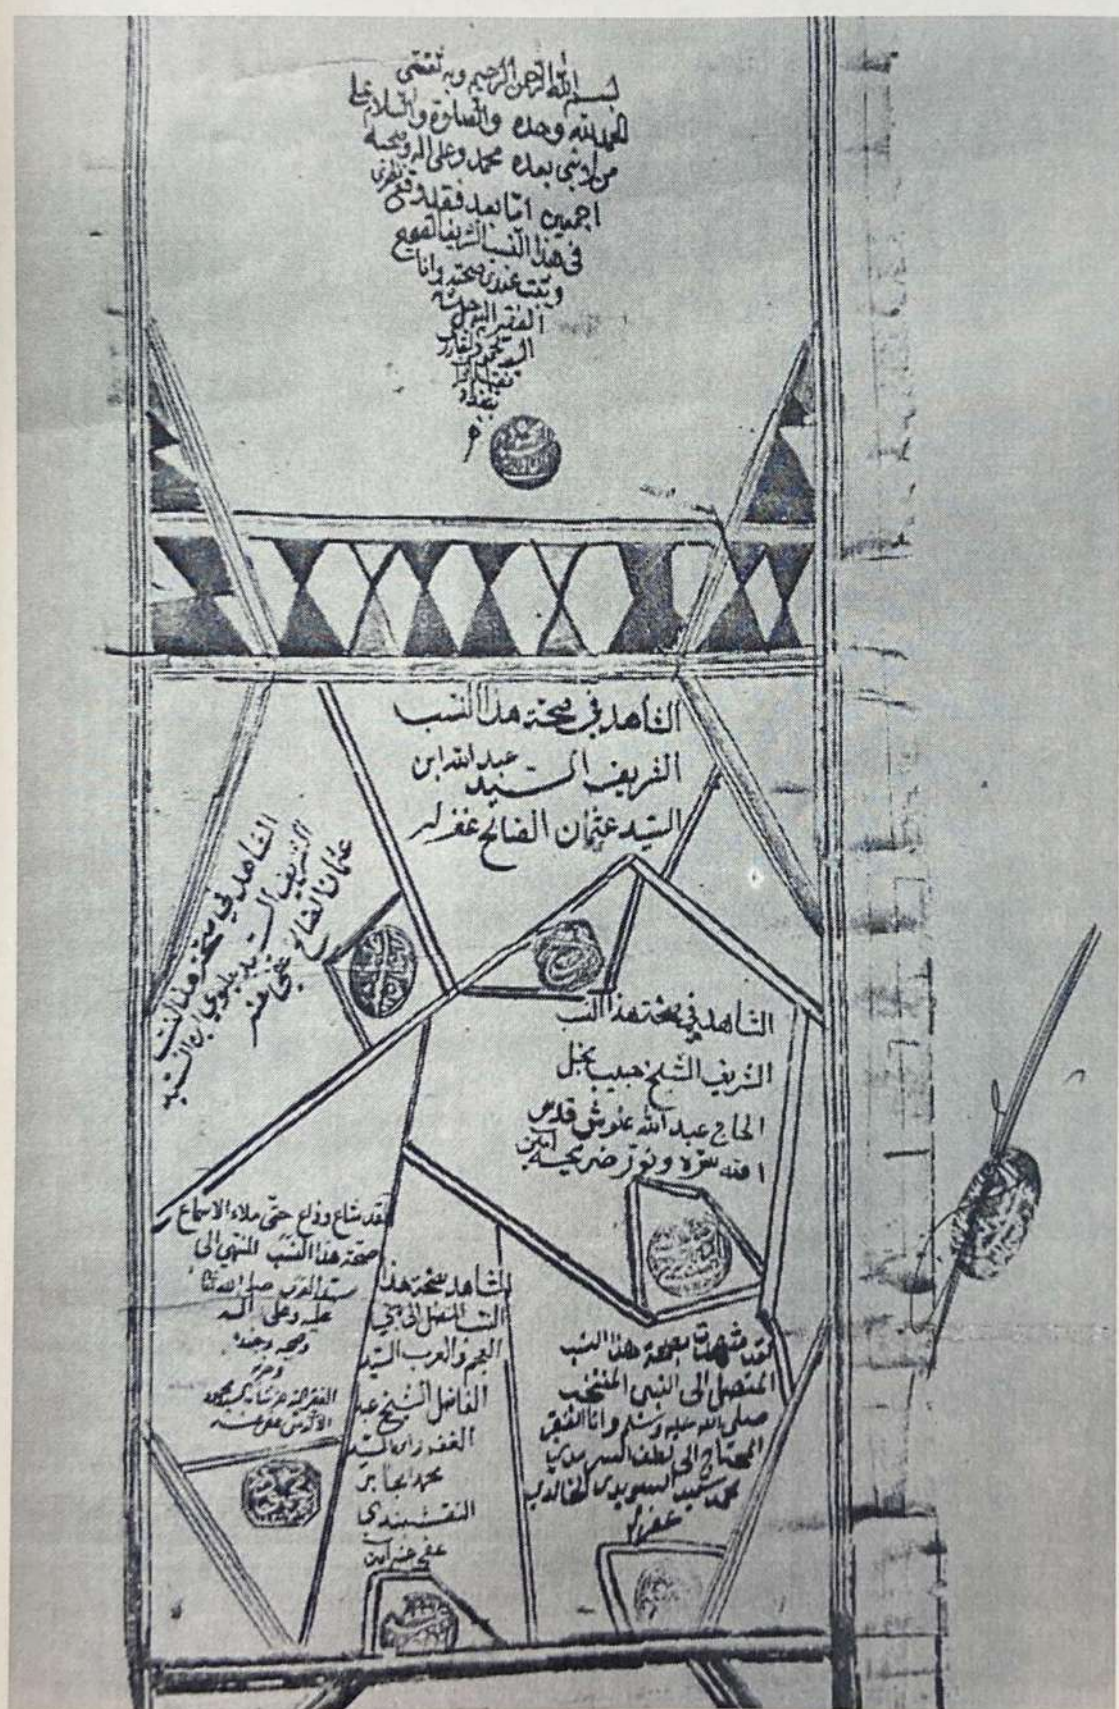 بسم الله الرحمن الرحيم وبه ثقتي
الحمد لله وحده والصلوة والسلام على
من لا نبي بعده محمد وعلى اله وصحبه
اجمعين اما بعد فقد وقع نظري
في هذا النسب الشريف الصحيح
وثبت عندي صحته وانا
الفقير اليه
السيد
نقيب
بغداد
الشاهد في صحة هذا النسب
الشريف السيد عبد الله ابن
السيد عثمان الفتالح غفر له
الشاهد في صحة هذا النسب
الشريف السيد ابن السيد
عثمان عفي عنه
الشاهد في صحة هذا النسب
الشريف الشيخ حبيب نجل
الحاج عبد الله علوش قدس
الله سره ونور ضريحه امين
لقد شاع وذاع حتى ملاء الاسماع
صحة هذا النسب المنتهي الى
صلى الله
عليه وعلى اله
وصحبه وجنده
وحزبه
الفقير
عفي عنه
الشاهد بصحة هذا
النسب المتصل الى
العجم والعرب السيد
الفاضل الشيخ عبد
الغفور ابن السيد
محمد الجابر
النقشبندي
عفي عنه امين
لقد شهدت بصحة هذا النسب
المتصل الى النبي المنتخب
صلى الله عليه وسلم وانا الفقير
المحتاج الى لطف السرمدي
محمد سعيد السويدي الخالدي
غفر له